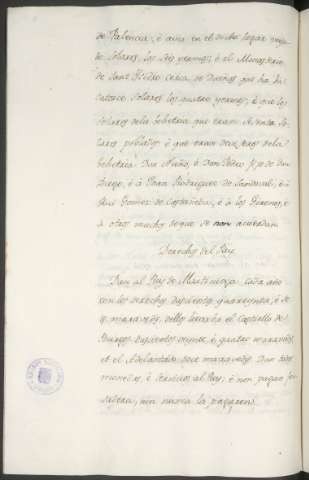 de Palencia, é avia en el dicho logar onze
Solares, los seis yermos; é el Monesterio
de Sant Pedro cerca de Dueñas que ha ha
catorce Solares los quatro yermos; é que los
Solares dela behetria que eran sesenta So-
lares poblados é que eran devisseros dela
behetria Don Nuño, é Don Pedro fijo de Don
Diego, é á Joan Rodriguez de Sandoval, é á
Rui Gomez de Castañeda, é á los Girones, é
á otros muchos de que se non acordavan
Derechos del Rey
Dan al Rey de Martiniega cada año
con los derechos dosientos quarenta, é de
maravedis, dellos lievaba el Castiello de
Burgos dosientos veinte, é quatro maravedis
et el Adelantado doce maravedis Dan mas
monedas, é servicios al Rey; é non pagan fon-
sadera, nin nunca la pagaron